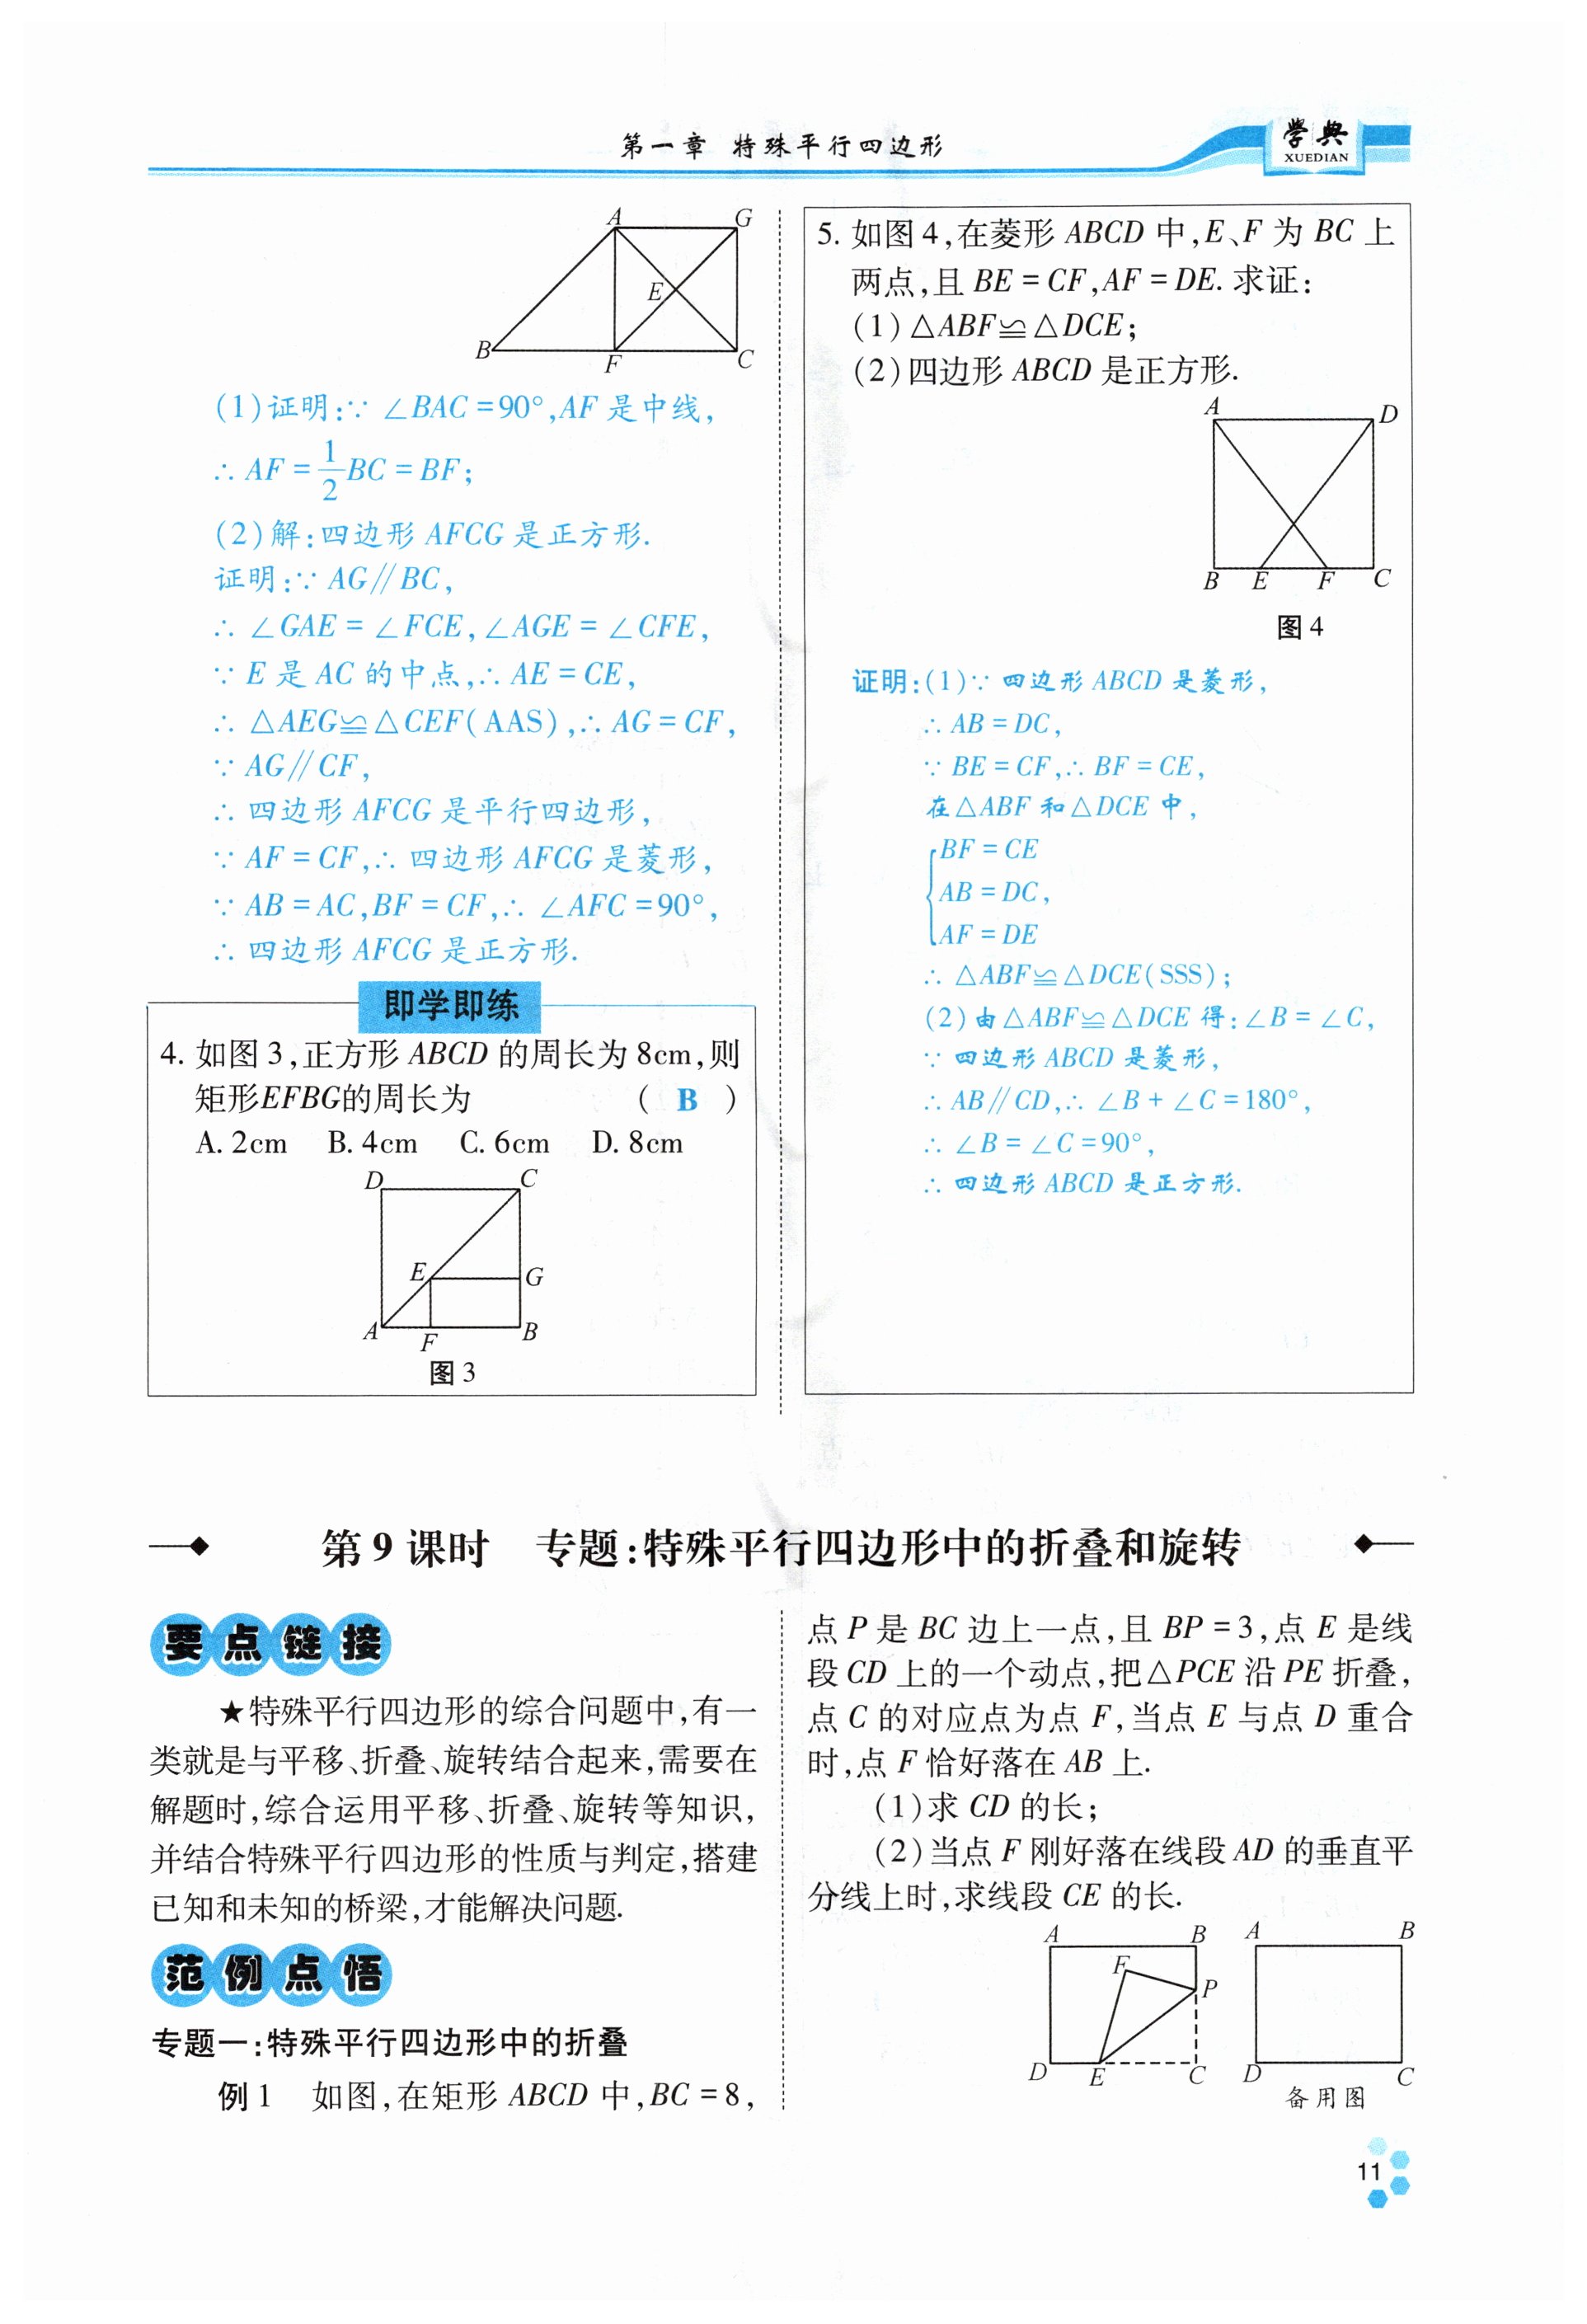 第一章 特殊平行四边形
学典
XUEDIAN
A
G
E
B
F
C
(1)证明:∵ ∠BAC=90°,AF 是中线,
∴ AF=1/2BC=BF;
(2)解:四边形 AFCG 是正方形.
证明:∵ AG∥BC,
∴ ∠GAE=∠FCE,∠AGE=∠CFE,
∵ E 是 AC 的中点,∴ AE=CE,
∴ △AEG≌△CEF(AAS),∴ AG=CF,
∵ AG∥CF,
∴ 四边形 AFCG 是平行四边形,
∵ AF=CF,∴ 四边形 AFCG 是菱形,
∵ AB=AC,BF=CF,∴ ∠AFC=90°,
∴ 四边形 AFCG 是正方形.
即学即练
4. 如图 3,正方形 ABCD 的周长为 8cm,则
矩形EFBG的周长为 ( B )
A. 2cm B. 4cm C. 6cm D. 8cm
D
C
E
G
A
F
B
图 3
5. 如图 4,在菱形 ABCD 中,E、F 为 BC 上
两点,且 BE=CF,AF=DE. 求证:
(1)△ABF≌△DCE;
(2)四边形 ABCD 是正方形.
A
D
B
E
F
C
图 4
证明:(1)∵ 四边形 ABCD 是菱形,
∴ AB=DC,
∵ BE=CF,∴ BF=CE,
在△ABF 和△DCE 中,
BF=CE
AB=DC,
AF=DE
∴ △ABF≌△DCE(SSS);
(2)由△ABF≌△DCE 得:∠B=∠C,
∵ 四边形 ABCD 是菱形,
∴ AB∥CD,∴ ∠B+∠C=180°,
∴ ∠B=∠C=90°,
∴ 四边形 ABCD 是正方形.
第 9 课时 专题:特殊平行四边形中的折叠和旋转
要点链接
★特殊平行四边形的综合问题中,有一
类就是与平移、折叠、旋转结合起来,需要在
解题时,综合运用平移、折叠、旋转等知识,
并结合特殊平行四边形的性质与判定,搭建
已知和未知的桥梁,才能解决问题.
范例点悟
专题一:特殊平行四边形中的折叠
例 1 如图,在矩形 ABCD 中,BC=8,
点 P 是 BC 边上一点,且 BP=3,点 E 是线
段 CD 上的一个动点,把△PCE 沿 PE 折叠,
点 C 的对应点为点 F,当点 E 与点 D 重合
时,点 F 恰好落在 AB 上.
(1)求 CD 的长;
(2)当点 F 刚好落在线段 AD 的垂直平
分线上时,求线段 CE 的长.
A
B
F
P
D
E
C
A
B
D
C
备用图
11